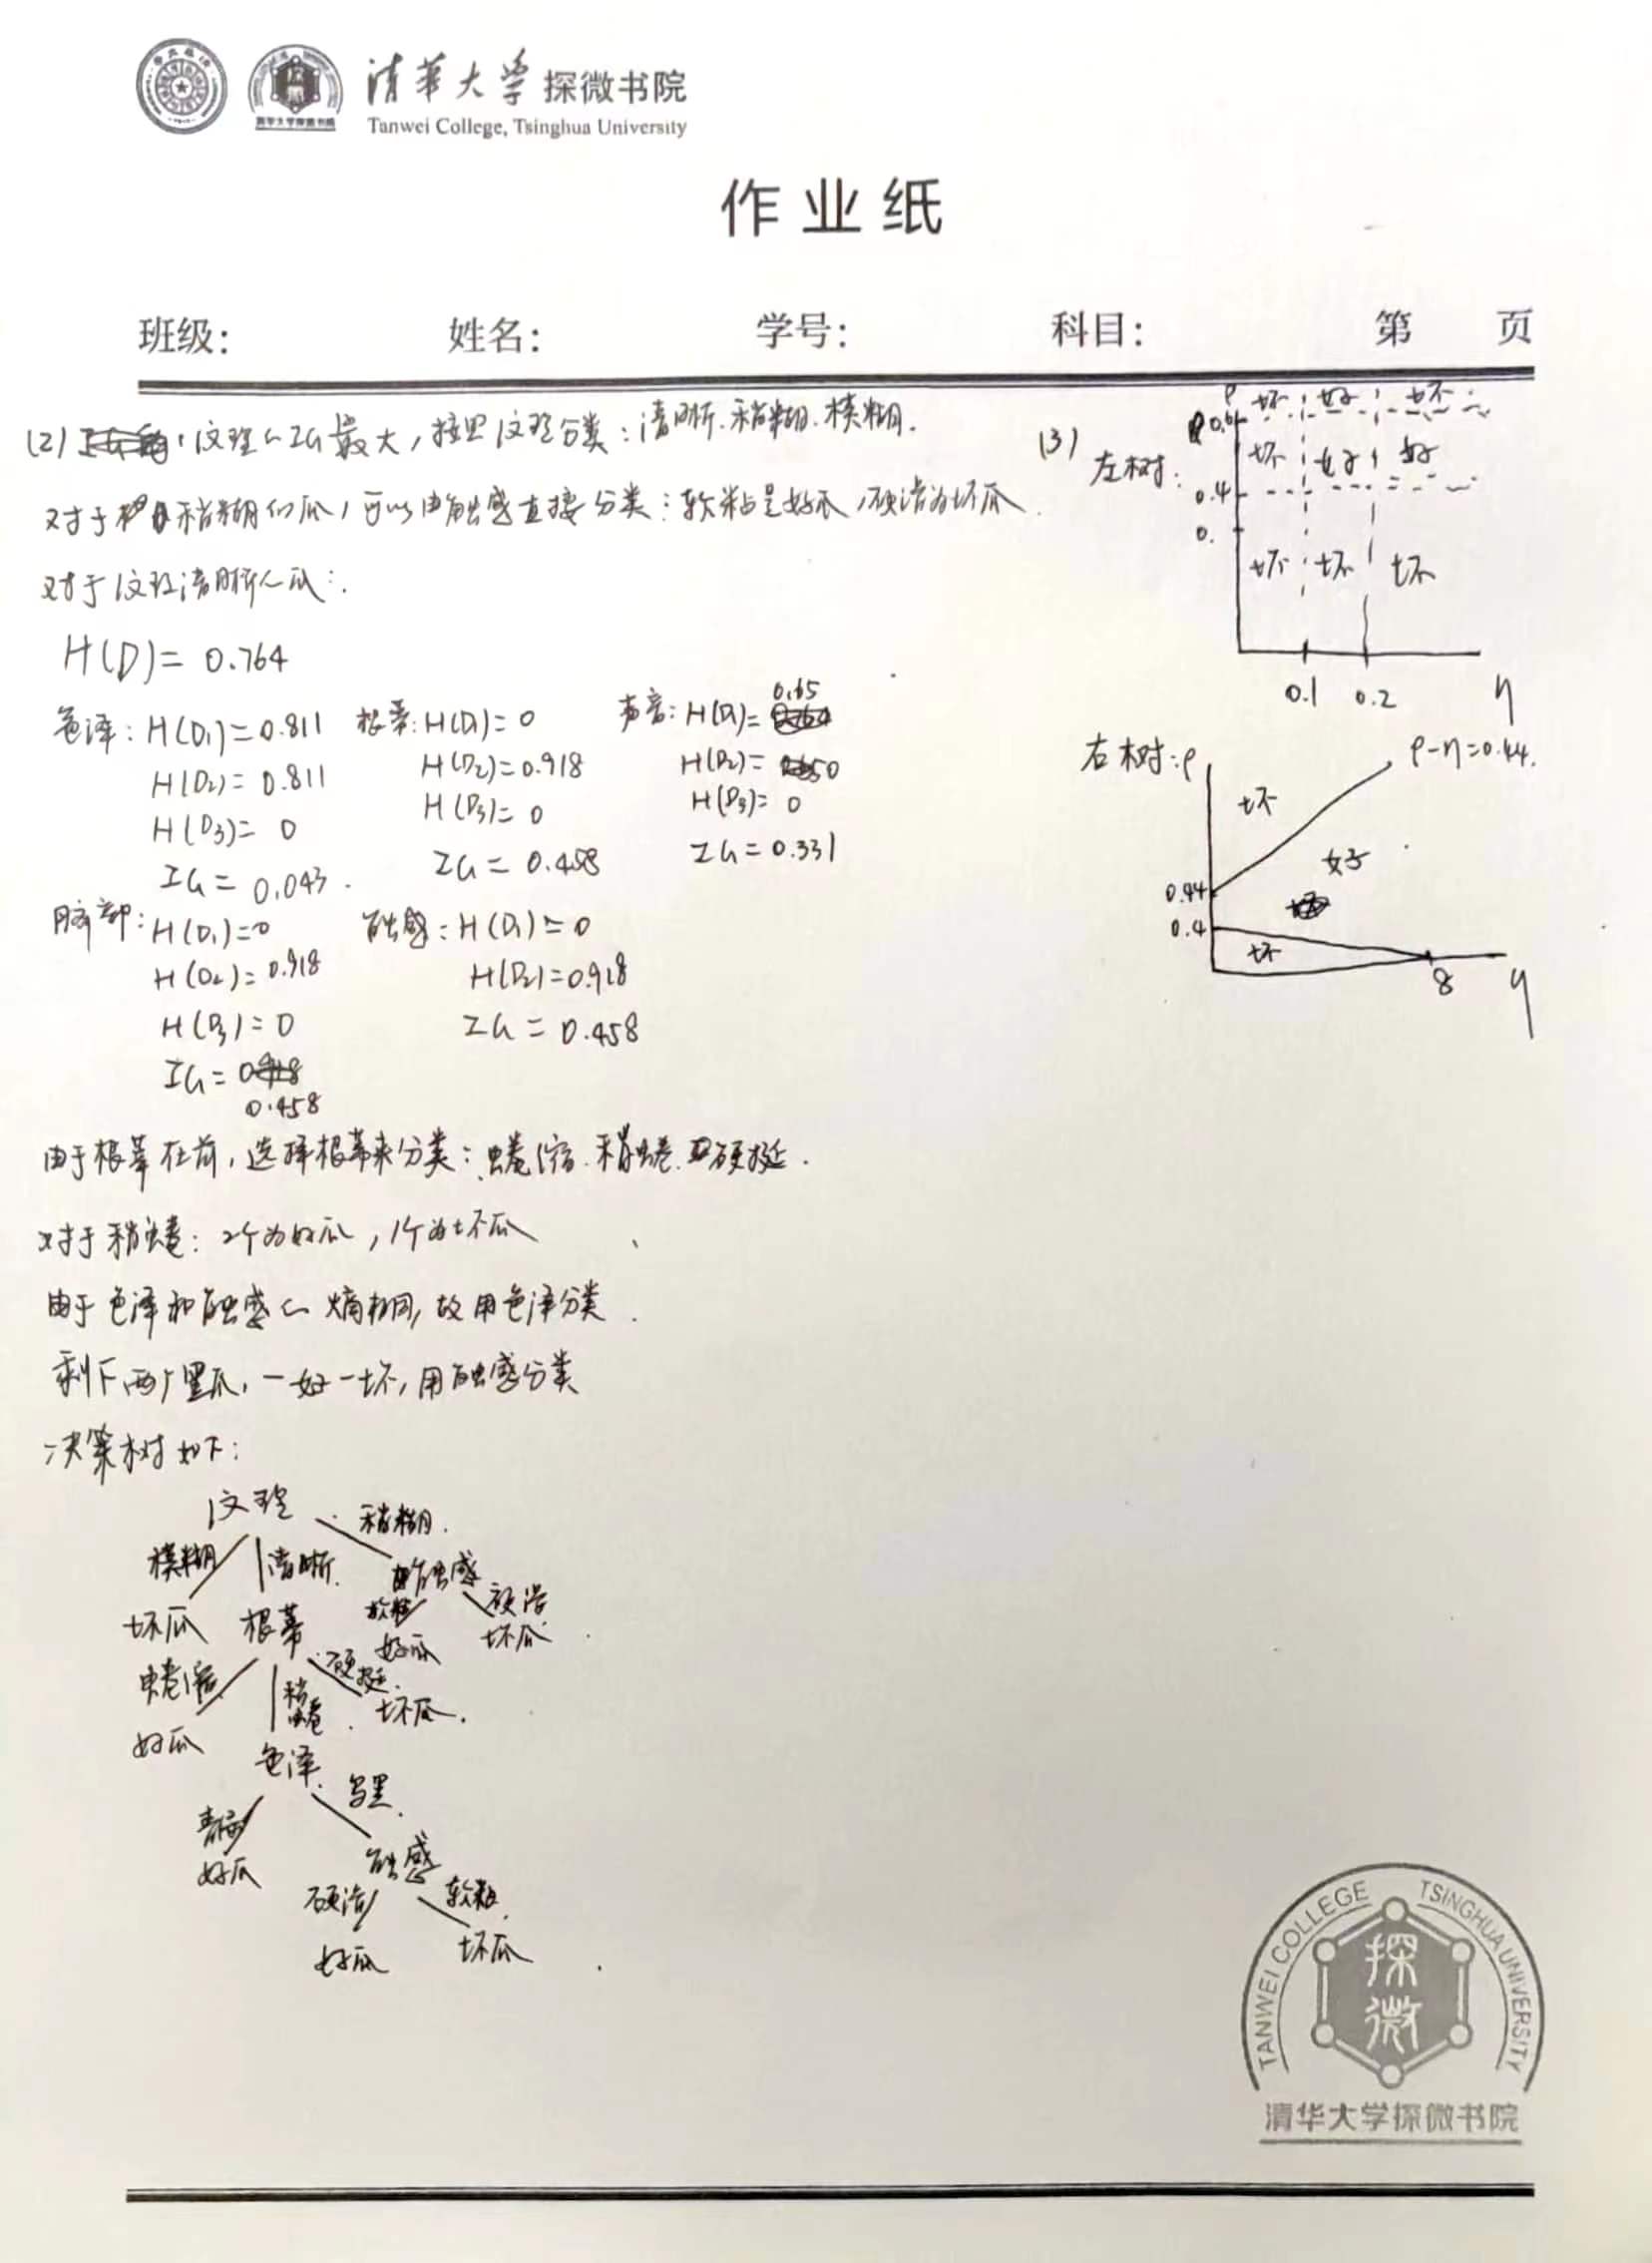 清华大学 探微书院
Tanwei College, Tsinghua University
作业纸
班级: 姓名: 学号: 科目: 第 页
(2) 纹理的IG最大,按照纹理分类:清晰.稍糊.模糊.
对于稍糊的瓜,可以由触感直接分类:软粘是好瓜,硬滑为坏瓜.
对于纹理清晰的瓜:
H(D)= 0.764
色泽: H(D1)=0.811
H(D2)= 0.811
H(D3)= 0
IG= 0.043.
根蒂: H(D1)=0
H(D2)=0.918
H(D3)= 0
IG= 0.458
声音: H(D1)= 0.65
H(D2)= 0
H(D3)= 0
IG= 0.331
脐部: H(D1)=0
H(D2)=0.918
H(D3)=0
IG= 0.458
触感: H(D1)=0
H(D2)=0.918
IG= 0.458
由于根蒂在前,选择根蒂来分类:蜷缩.稍蜷.硬挺.
对于稍蜷: 2个为好瓜,1个为坏瓜
由于色泽和触感的熵相同,故用色泽分类.
剩下两个黑瓜,一好一坏,用触感分类
决策树如下:
纹理
模糊 清晰. 稍糊.
坏瓜 根蒂 触感
软粘 硬滑
好瓜 坏瓜
蜷缩 稍蜷. 硬挺.
好瓜 色泽 坏瓜.
青绿 乌黑.
好瓜 触感
硬滑 软粘.
好瓜 坏瓜
(3) 左树:
ρ 坏 好 坏
0.6
坏 好 好
0.4
0.
坏 坏 坏
0.1 0.2 η
右树: ρ ρ-η=0.44.
坏
好
0.44
0.4
坏
8 η
TANWEI COLLEGE TSINGHUA UNIVERSITY
探微
清华大学探微书院